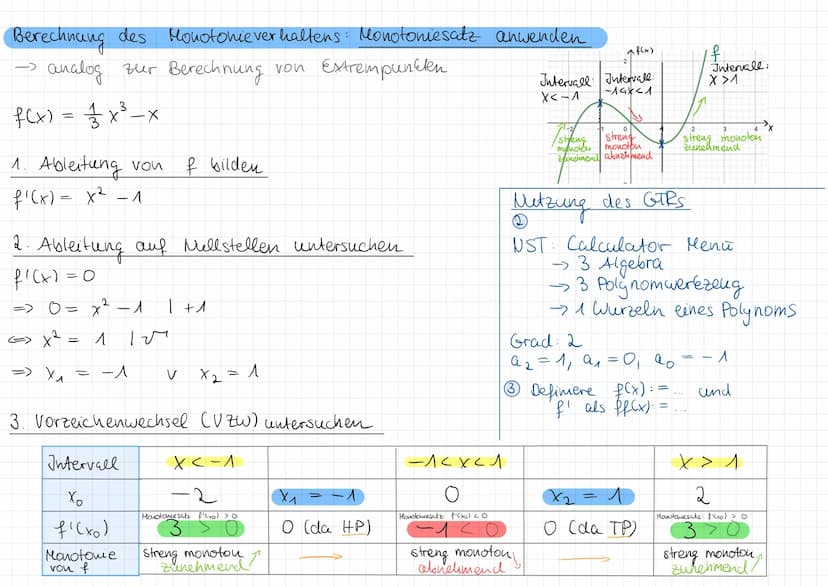 Berechnung des Monotonieverhaltens: Monotoniesatz anwenden
→ analog zur Berechnung von Extrempunkten
f(x) = 1/3 x³ - x
1. Ableitung von f bilden
f'(x) = x² - 1
2. Ableitung auf Nullstellen untersuchen
f'(x) = 0
=> 0 = x² - 1 | +1
<=> x² = 1 | √
=> x₁ = -1 ∨ x₂ = 1
3. Vorzeichenwechsel (VZW) untersuchen
f(x)
f
Intervall: x < -1
Intervall: -1 < x < 1
Intervall: x > 1
streng monoton zunehmend
streng monoton abnehmend
streng monoton zunehmend
-2 -1 0 1 2 3 4 x
Nutzung des GTRs
②
NST: Calculator Menü
→ 3 Algebra
→ 3 Polynomwerkzeug
→ 1 Wurzeln eines Polynoms
Grad: 2
a₂ = 1, a₁ = 0, a₀ = -1
③ Definiere f(x) := ... und
f' als ff(x) := ...
Intervall x < -1 -1 < x < 1 x > 1
x₀ -2 x₁ = -1 0 x₂ = 1 2
Monotoniesatz: f'(x₀) > 0 Monotoniesatz: f'(x₀) < 0 Monotoniesatz: f'(x₀) > 0
f'(x₀) 3 > 0 0 (da HP) -1 < 0 0 (da TP) 3 > 0
Monotonie streng monoton → streng monoton → streng monoton
von f zunehmend ↗ abnehmend ↘ zunehmend ↗